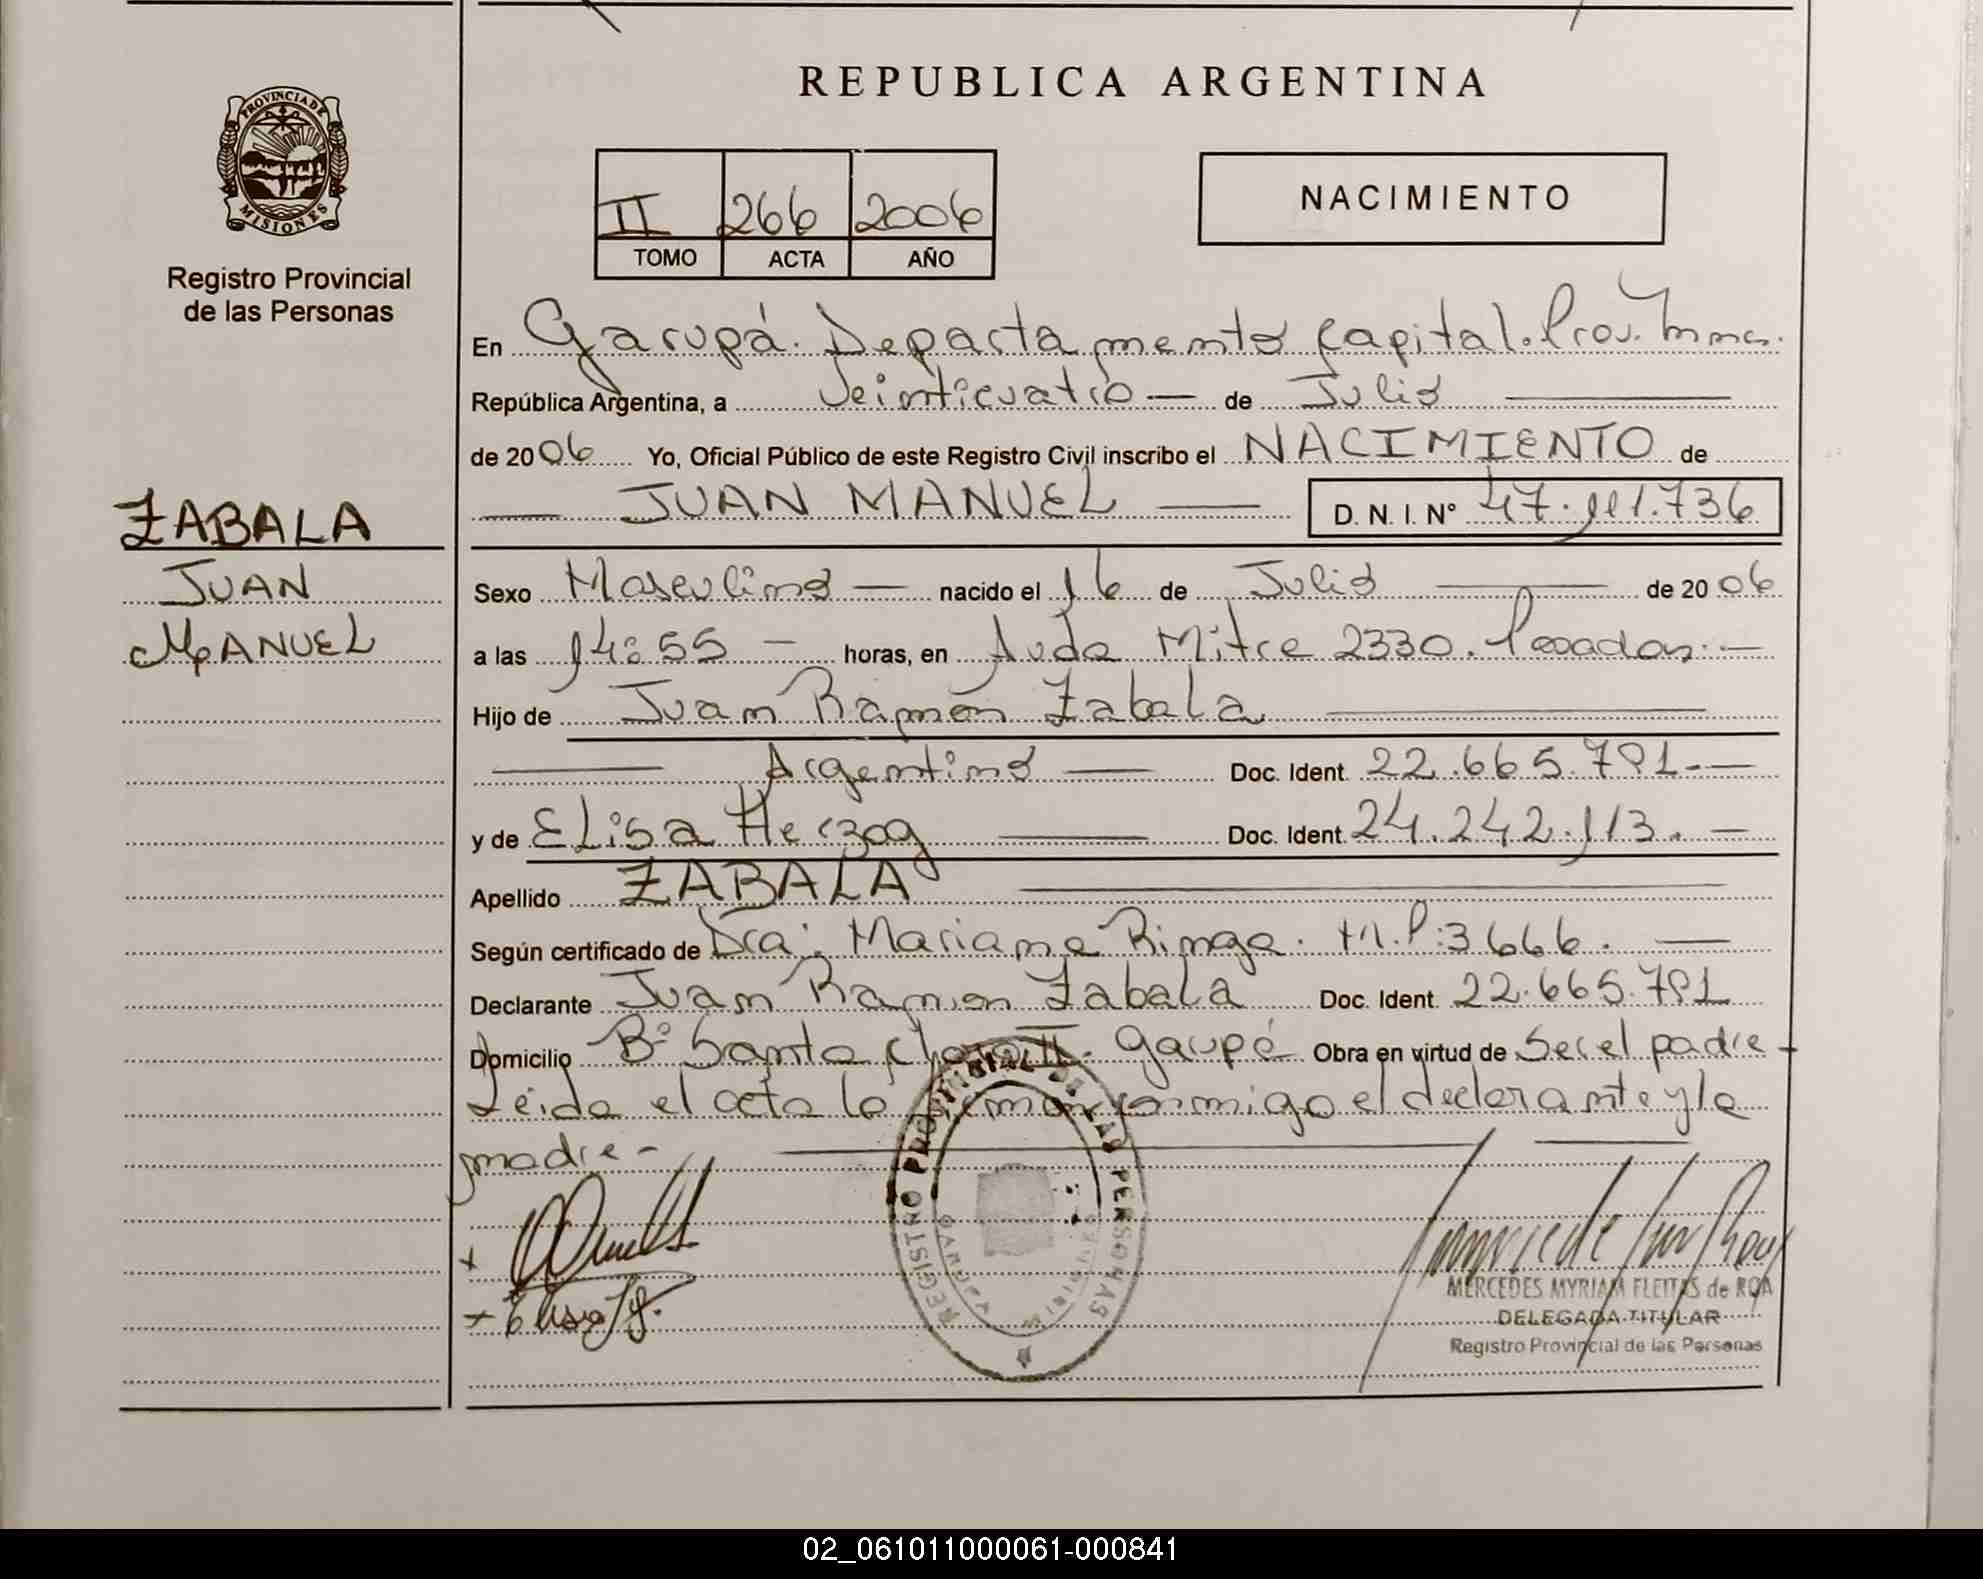 REPUBLICA ARGENTINA
PROVINCIA DE MISIONES
Registro Provincial
de las Personas
II 266 2006
TOMO ACTA AÑO
NACIMIENTO
En Garupá. Departamento Capital. Prov. Mnes.
República Argentina, a veinticuatro — de Julio
de 2006 Yo, Oficial Público de este Registro Civil inscribo el NACIMIENTO de
JUAN MANUEL D. N. I. N° 47.111.736
ZABALA
JUAN
MANUEL
Sexo Masculino — nacido el 16 de Julio de 2006
a las 14:55 — horas, en Avda Mitre 2330. Posadas. —
Hijo de Juan Ramón Zabala
Argentino — Doc. Ident. 22.665.791. —
y de Elisa Herzog Doc. Ident. 24.242.113. —
Apellido ZABALA
Según certificado de Dra. Mariana Ringa. M.P:3666. —
Declarante Juan Ramon Zabala Doc. Ident. 22.665.791
Domicilio B° Santa Clara II. Gaupá Obra en virtud de Ser el padre -
Leida el acta la firman conmigo el declarante y la
madre -
REGISTRO PROVINCIAL DE LAS PERSONAS
MERCEDES MYRIAM FLEITAS de ROA
DELEGADA TITULAR
Registro Provincial de las Personas
02_061011000061-000841